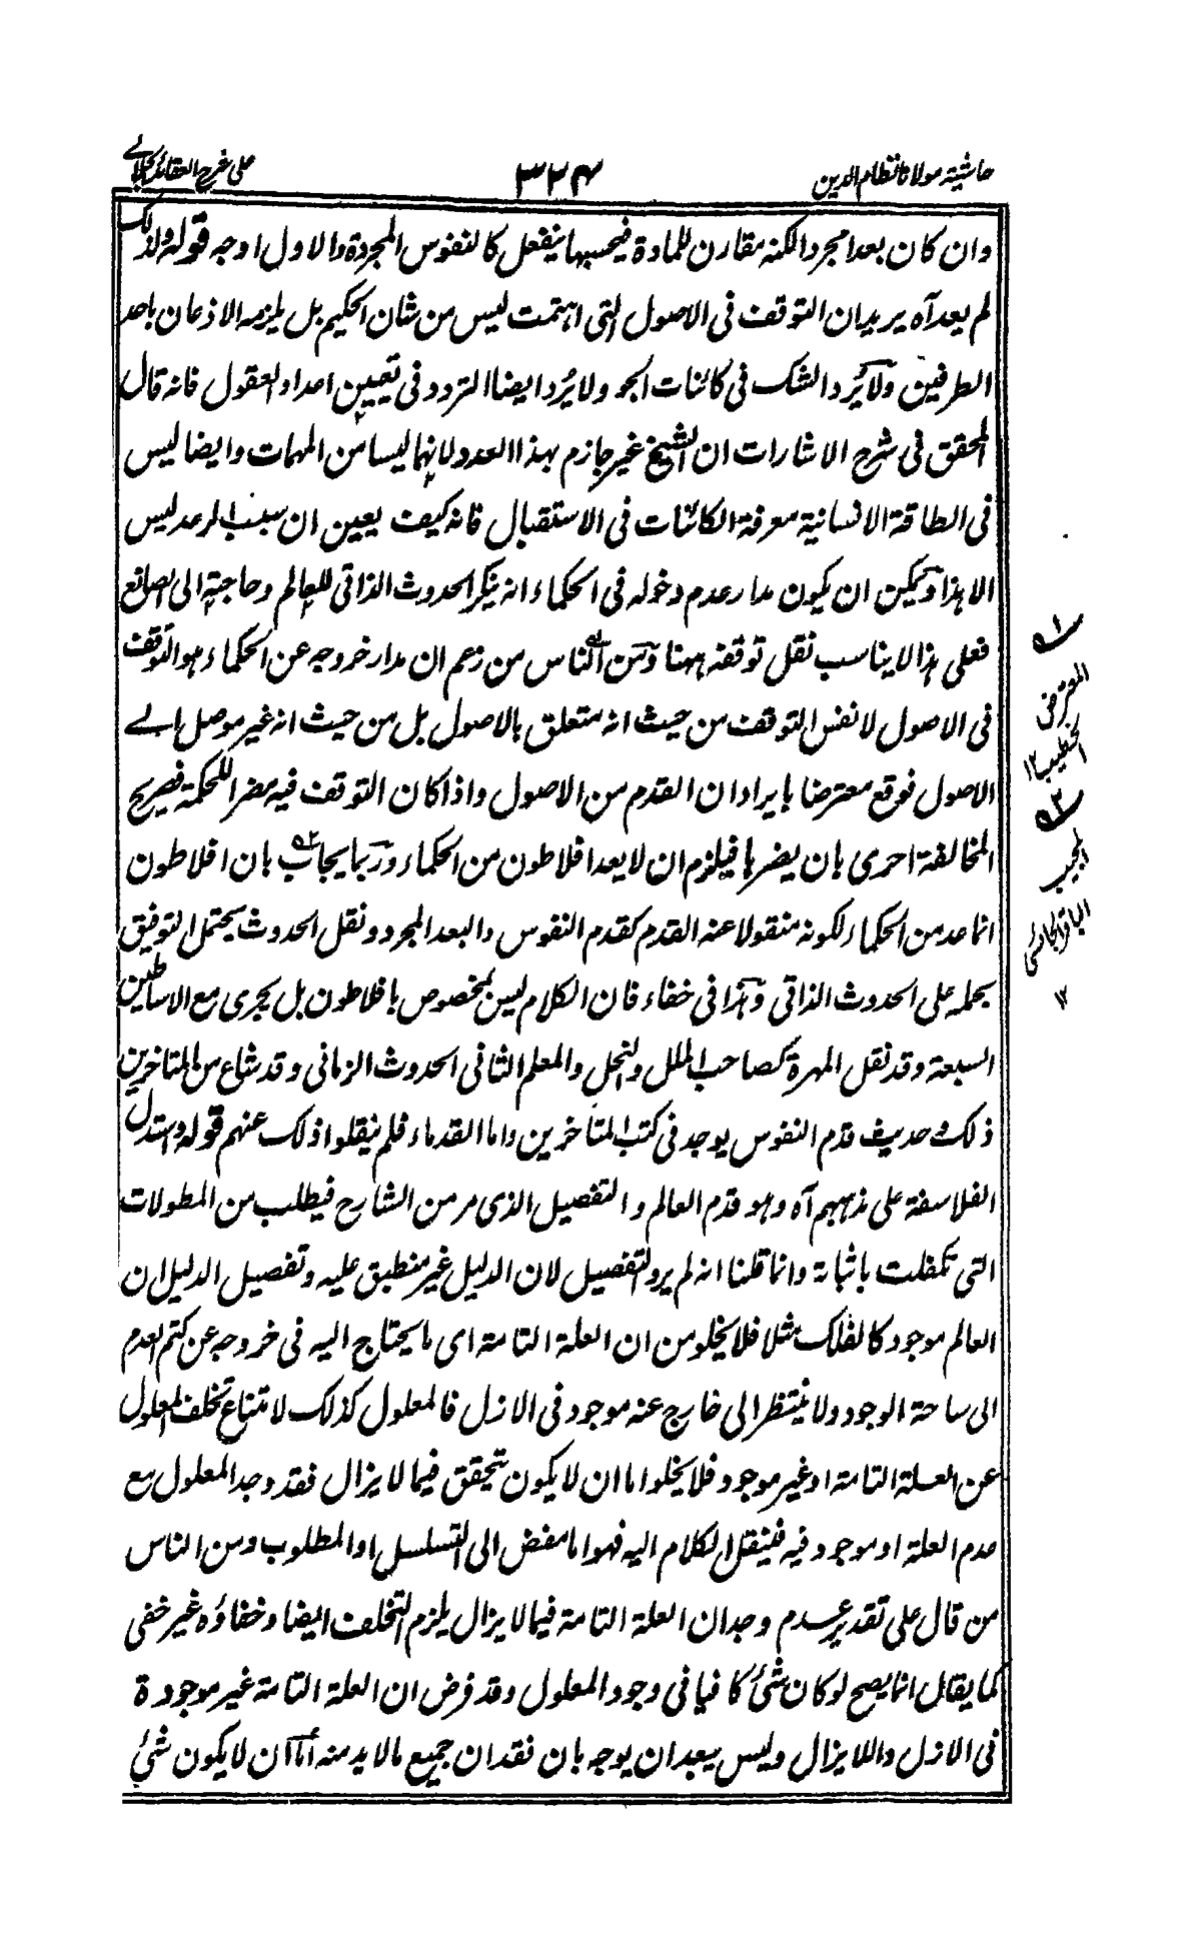 حاشیة مولانا نظام الدین
٣٢٤
علی شرح العقائد الجلالی
وان کان بعدا مجردا لکنه مقارن للمادة فیحسبها ینفعل کالنفوس المجردة والاول اوجه قوله ولذلک
لم یعد آه یرید ان التوقف فی الاصول التی اهتمت لیس من شان الحکیم بل یلزمه الاذعان باحد
الطرفین ولا یُرد الشک فی کائنات الجو ولا یُرد ایضا التردد فی تعیین اعداد العقول فانه قال
المحقق فی شرح الاشارات ان الشیخ غیر جازم بهذا العدد لانهما لیسا من المهمات وایضا لیس
فی الطاقة الانسانیة معرفة الکائنات فی الاستقبال فانه کیف یعین ان سبب الرعد لیس
الا هذا ویمکن ان یکون مدار عدم دخوله فی الحکماء انه ینکر الحدوث الذاتی للعالم وحاجته الی الصانع
فعلی هذا لا یناسب نقل توقفه ههنا ومن الناس من زعم ان مدار خروجه عن الحکماء هو التوقف
فی الاصول لا نفس التوقف من حیث انه متعلق بالاصول بل من حیث انه غیر موصل الے
الاصول فوقع معترضا بایراد ان القدم من الاصول واذا کان التوقف فیه مضر اللحکمة فصریح
المخالفة احری بان یضرها فیلزم ان لا یعد افلاطون من الحکماء وربما یجاب بان افلاطون
انما عد من الحکماء لکونه منقولا عنه القدم کقدم النفوس والبعد المجرد ونقل الحدوث یحتمل التوفیق
بحمله علی الحدوث الذاتی وهذا فی خفاء فان الکلام لیس بمخصوص بافلاطون بل یجری مع الاساطین
السبعة وقد نقل المهرة کصاحب الملل والنحل والمعلم الثانی الحدوث الزمانی وقد شاع من المتاخرین
ذلک وحدیث قدم النفوس یوجد فی کتب المتاخرین واما القدماء فلم ینقلوا ذلک عنهم قوله واستدل
الفلاسفة علی مذهبهم آه وهو قدم العالم والتفصیل الذی مر من الشارح فیطلب من المطولات
التی تکفلت باثباته وانما قلنا انه لم یرد التفصیل لان الدلیل غیر منطبق علیه وتفصیل الدلیل ان
العالم موجود کالفلک مثلا فلا یخلو من ان العلة التامة ای ما یحتاج الیه فی خروجه عن کتم العدم
الی ساحة الوجود ولا ینتظر الی خارج عنه موجود فی الازل فالمعلول کذلک لامتناع تخلف المعلول
عن العلة التامة او غیر موجود فلا یخلوا ما ان لا یکون یتحقق فیما لا یزال فقد وجد المعلول مع
عدم العلة او موجود فیه فینقل الکلام الیه فهو اما مفض الی التسلسل او المطلوب ومن الناس
من قال علی تقدیر عدم وجدان العلة التامة فیما لا یزال یلزم التخلف ایضا وخفاؤه غیر خفی
کما یقال انما یصح لو کان شئ کافیا فی وجود المعلول وقد فرض ان العلة التامة غیر موجودة
فی الازل واللایزال ولیس ببعد ان یوجه بان فقدان جمیع ما لا بد منه اما ان لا یکون شئ
١ه
المعترض
الخطیب ١٢
٢ه
المجیب
١٢